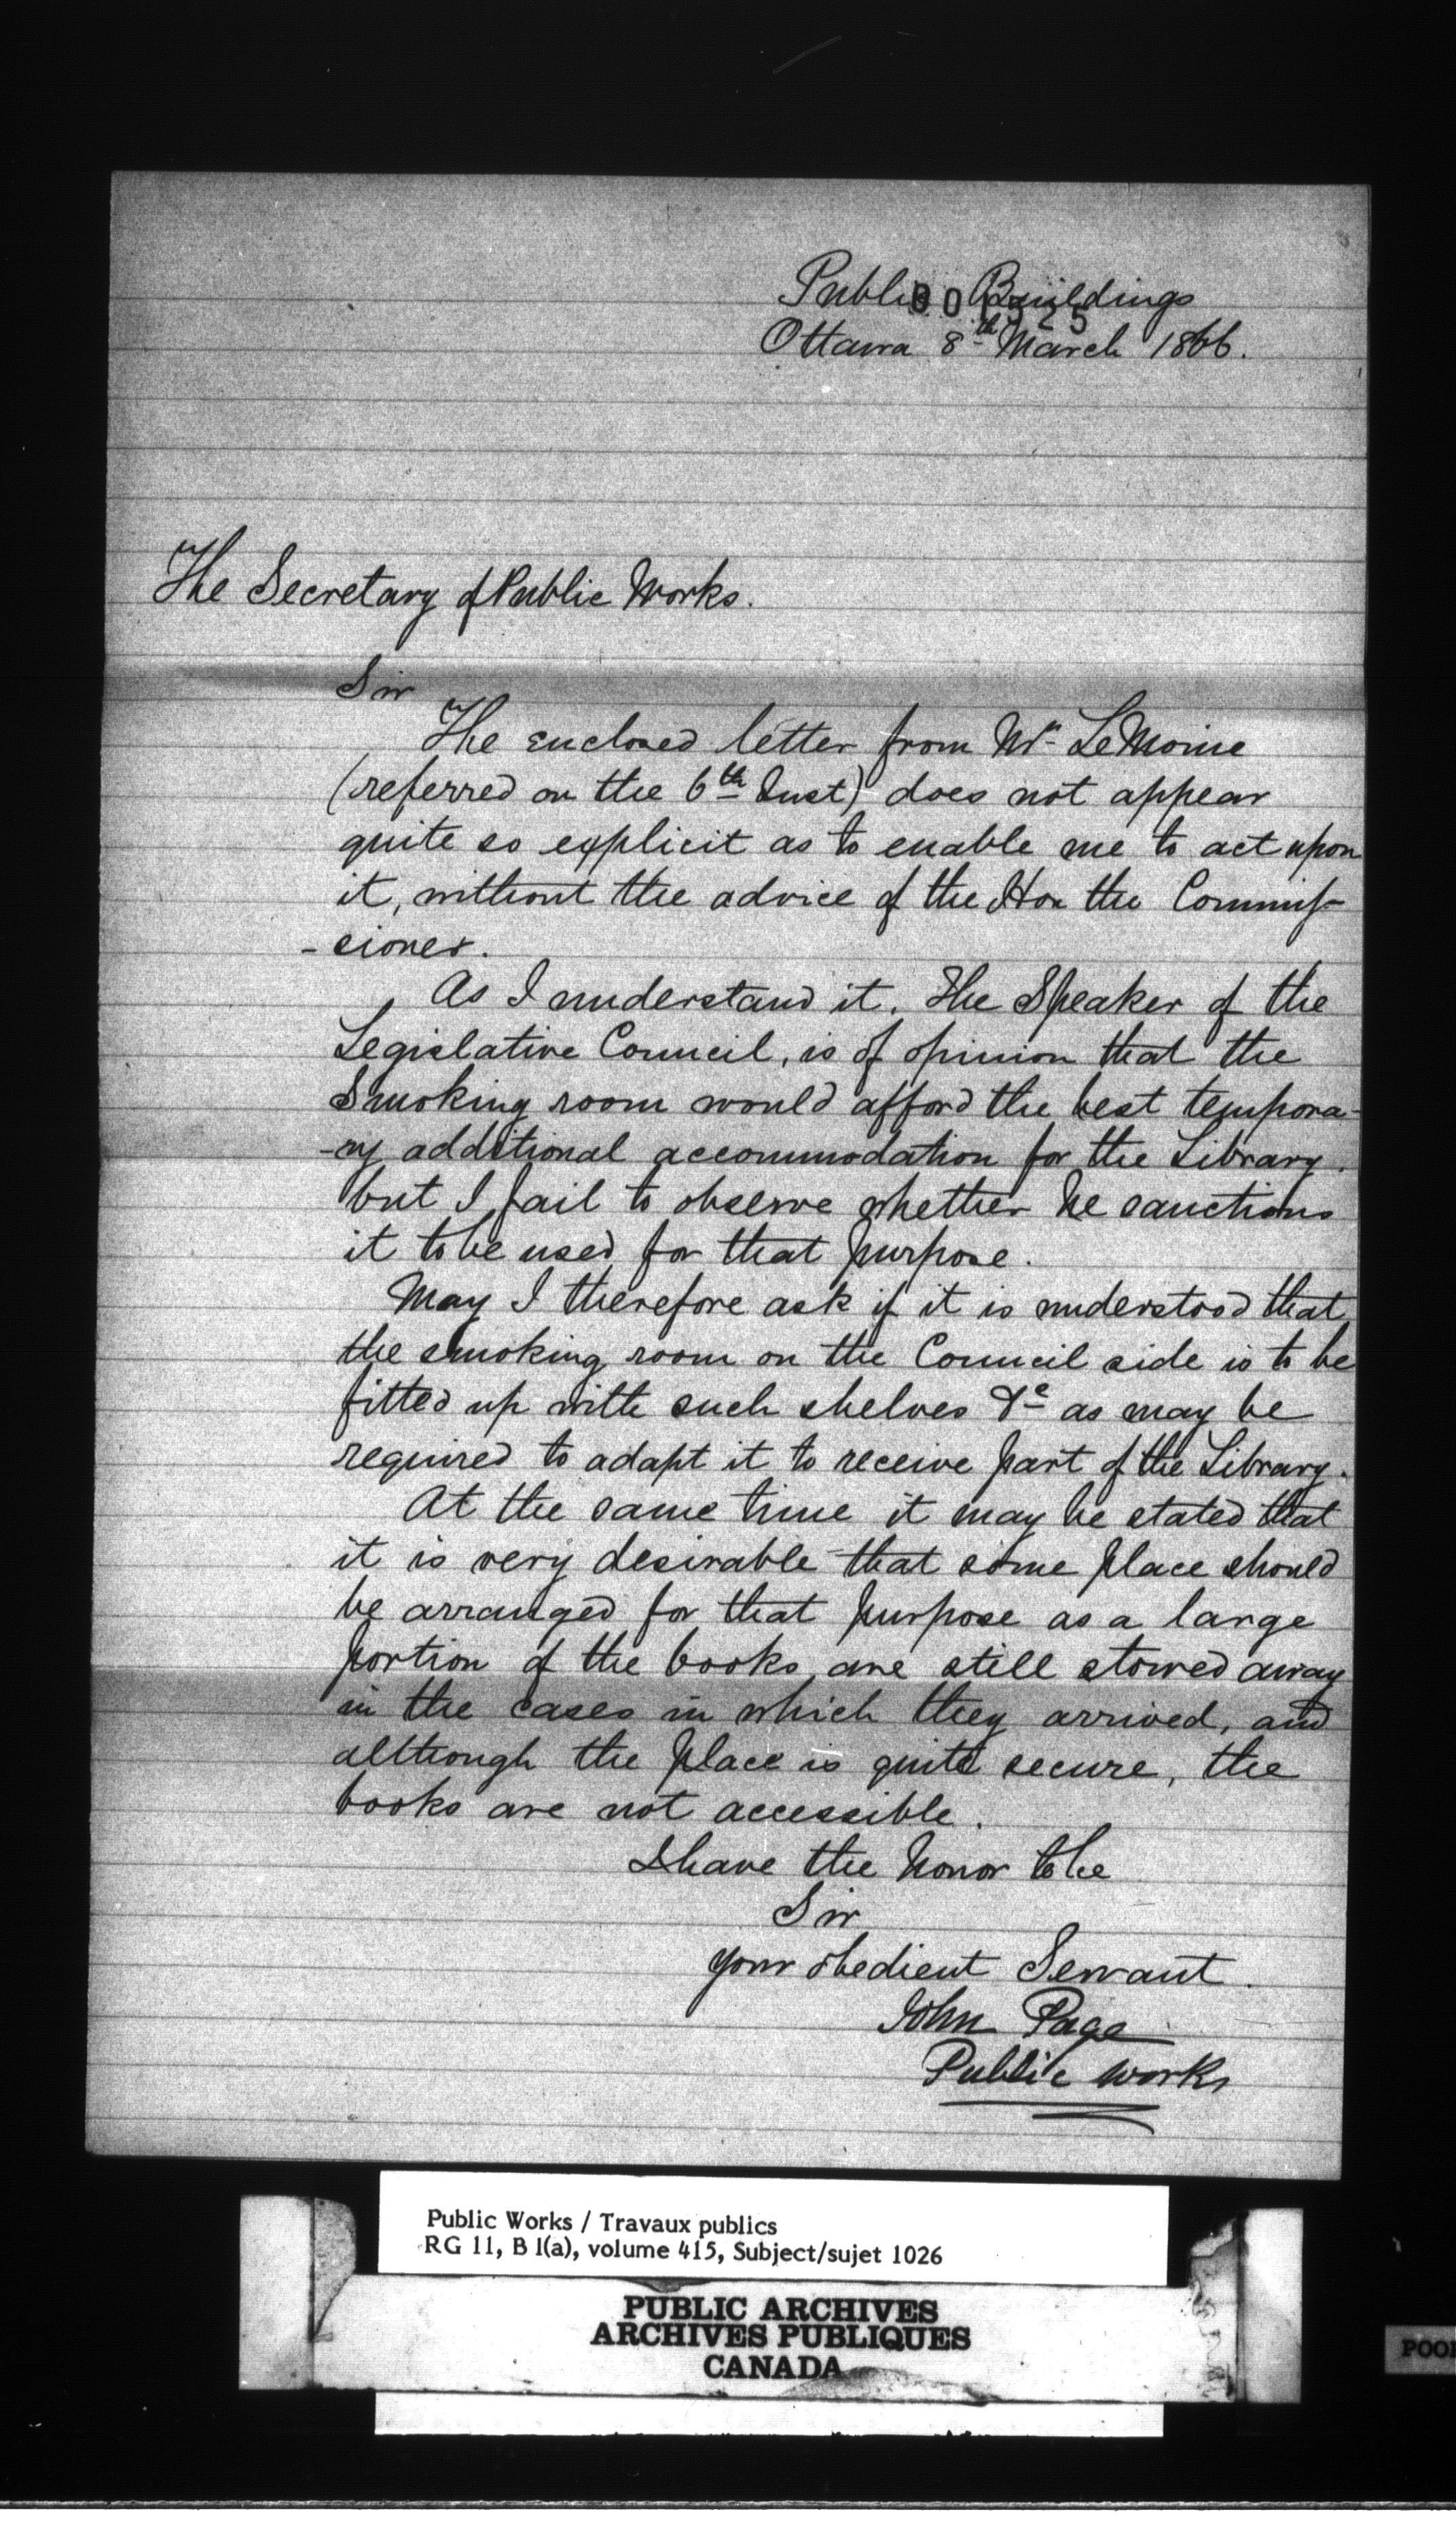 Public Buildings
001525
Ottawa 8th March 1866.
The Secretary of Public Works.
Sir
The enclosed letter from Mr LeMoine
(referred on the 6th Inst) does not appear
quite so explicit as to enable me to act upon
it, without the advice of the Hon the Commis-
-sioner.
As I understand it, The Speaker of the
Legislative Council, is of opinion that the
Smoking room would afford the best tempora-
-ry additional accommodation for the Library.
but I fail to observe whether he sanctions
it to be used for that purpose.
May I therefore ask if it is understood that
the smoking room on the Council side is to be
fitted up with such shelves &c as may be
required to adapt it to receive part of the Library.
At the same time it may be stated that
it is very desirable that some place should
be arranged for that purpose as a large
portion of the books, are still stowed away
in the cases in which they arrived, and
although the place is quite secure, the
books are not accessible.
I have the honor to be
Sir
your obedient Servant.
John Page
Public works
Public Works / Travaux publics
RG 11, B 1(a), volume 415, Subject/sujet 1026
PUBLIC ARCHIVES
ARCHIVES PUBLIQUES
CANADA